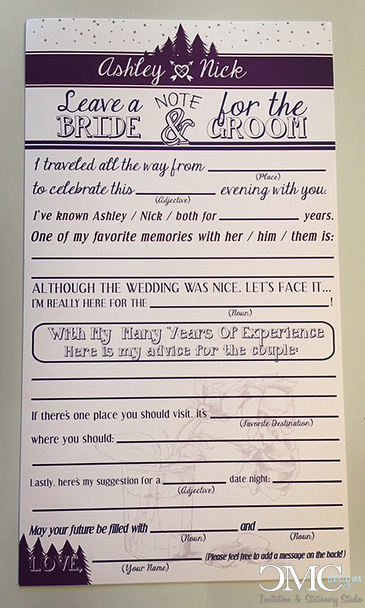 Ashley Nick
Leave a NOTE for the
BRIDE & GROOM
I traveled all the way from
(Place)
to celebrate this evening with you.
(Adjective)
I've known Ashley / Nick / both for years.
One of my favorite memories with her / him / them is:
ALTHOUGH THE WEDDING WAS NICE, LET'S FACE IT...
I'M REALLY HERE FOR THE !
(Noun)
With My Many Years Of Experience
Here is my advice for the couple:
If there's one place you should visit, it's
(Favorite Destination)
where you should:
Lastly, here's my suggestion for a date night:
(Adjective)
May your future be filled with and
(Noun) (Noun)
(Please feel free to add a message on the back!)
LOVE,
(Your Name)
CMC designs
Invitation & Stationery Studio